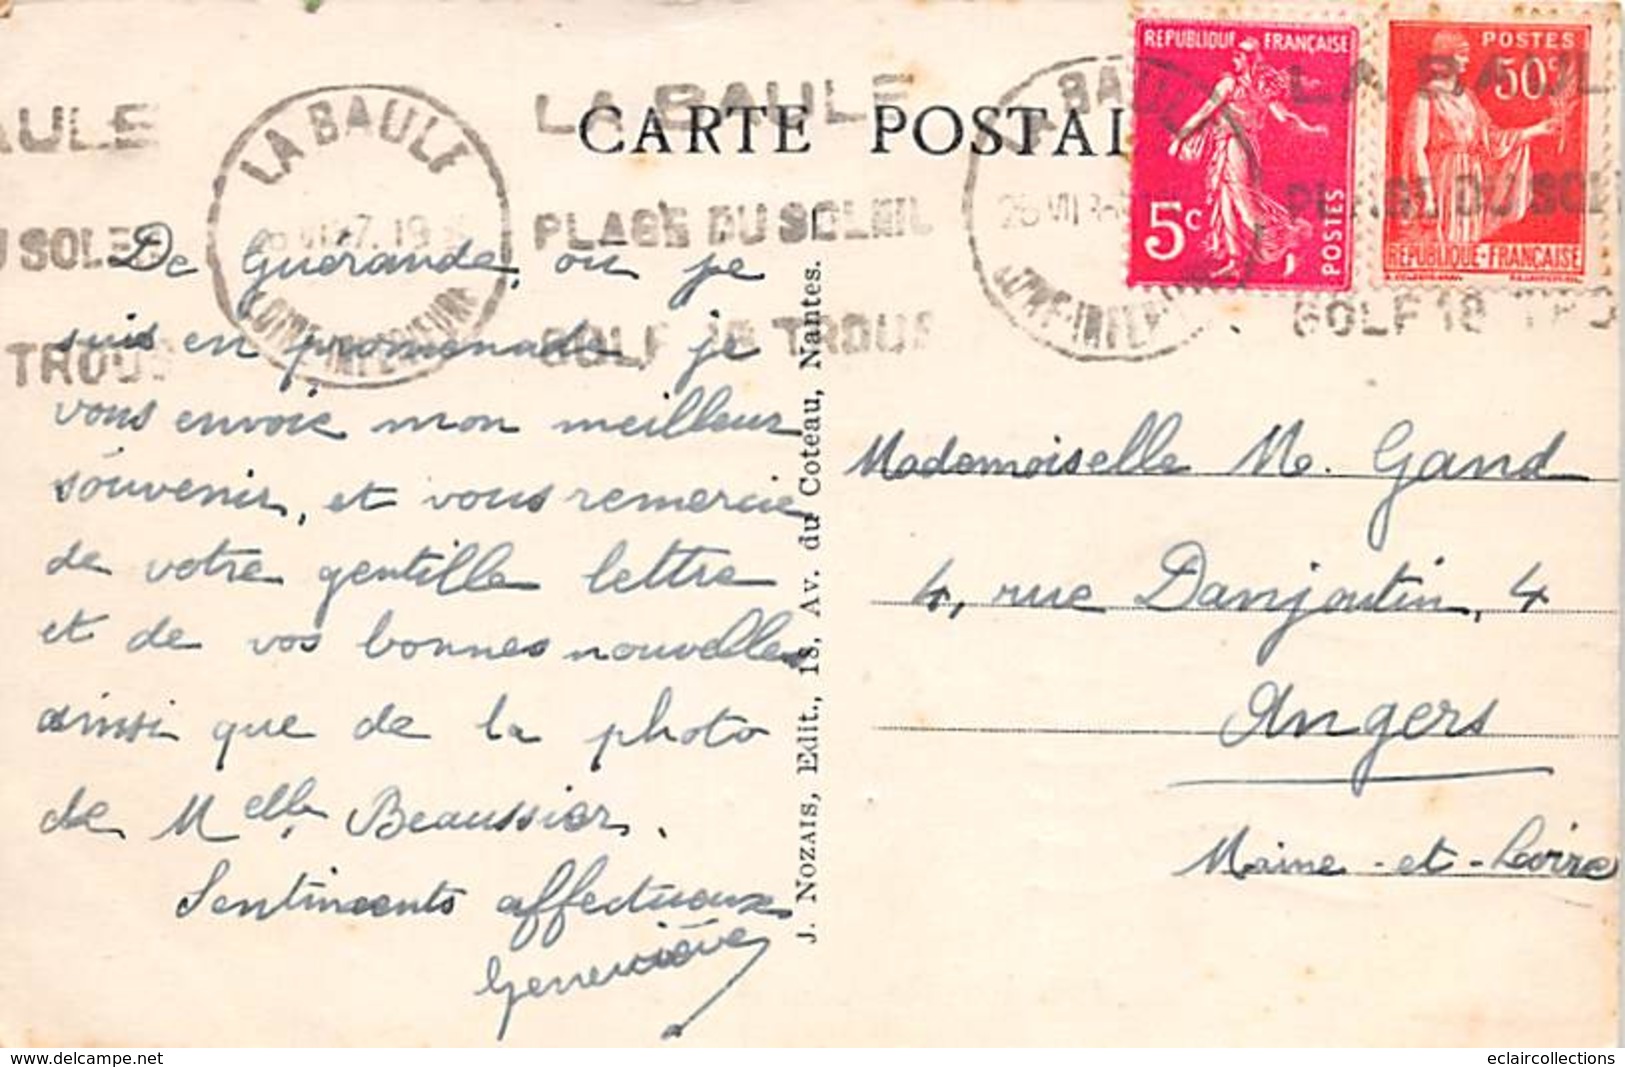 CARTE POSTAL
LA BAULE
LOIRE-INFERIEURE
LA BAULE
PLAGE DU SOLEIL
GOLF 18 TROUS
LA BAULE
LOIRE-INFERIEURE
LA BAUL
PLAGE DU SOL
GOLF 18 TRO
AULE
U SOLEIL
TROUS
REPUBLIQUE FRANÇAISE
5c
POSTES
POSTES
50c
REPUBLIQUE-FRANÇAISE
De Guérande, ou je
suis en promenade je
vous envoie mon meilleur
souvenir, et vous remercie
de votre gentille lettre
et de vos bonnes nouvelles
ainsi que de la photo
de Melle Beaussier.
Sentiments affectueux
Geneviève
J. NOZAIS, Edit., 18, Av. du Coteau, Nantes.
Mademoiselle M. Gand
4, rue Danjoutin, 4
Angers
Maine-et-Loire
www.delcampe.net
eclaircollections